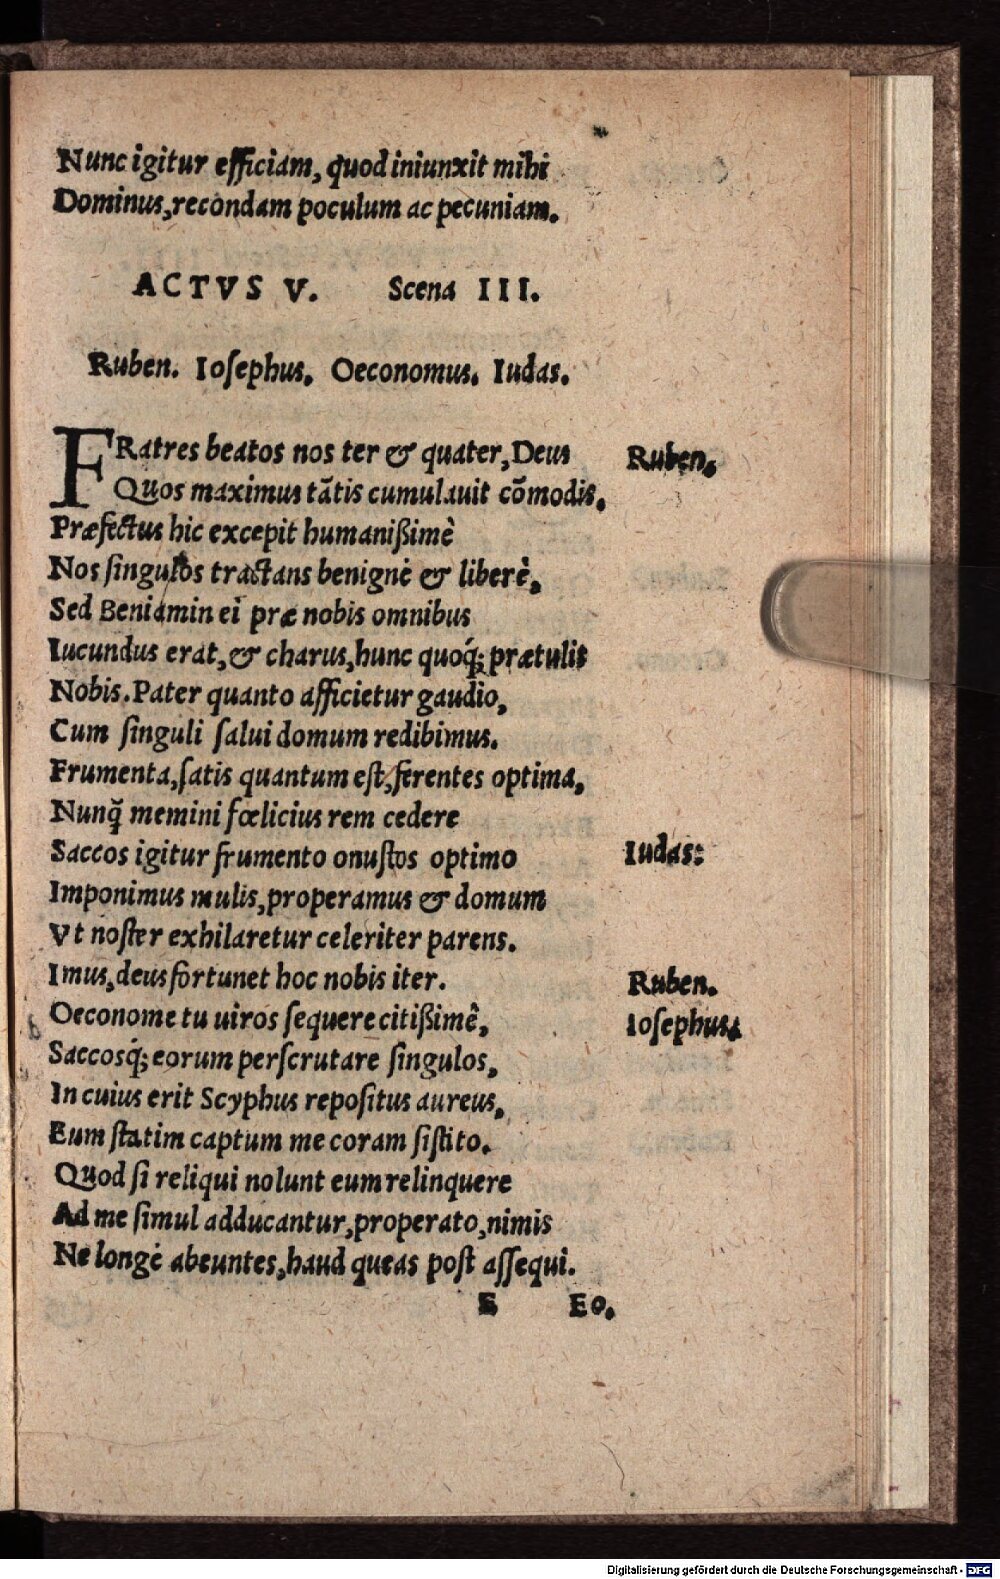 Nunc igitur efficiam, quod iniunxit mihi
Dominus, recondam poculum ac pecuniam.
ACTVS V. Scena III.
Ruben. Ioſephus. Oeconomus. Iudas.
FRatres beatos nos ter & quater, Deus Ruben.
Quos maximus tãtis cumulauit cõmodis.
Præfectus hic excepit humanißimè
Nos ſingulos tractans benignè & liberè,
Sed Beniamin ei præ nobis omnibus
Iucundus erat, & charus, hunc quoq́; prætulit
Nobis. Pater quanto afficietur gaudio,
Cum ſinguli ſalui domum redibimus.
Frumenta, ſatis quantum eſt, ferentes optima,
Nunq̃ memini fœlicius rem cedere
Saccos igitur frumento onuſtos optimo Iudas:
Imponimus mulis, properamus & domum
Vt noſter exhilaretur celeriter parens.
Imus, deus fortunet hoc nobis iter. Ruben.
Oeconome tu uiros ſequere citißimê, Ioſephus.
Saccosq́; eorum perſcrutare ſingulos,
In cuius erit Scyphus repoſitus aureus,
Eum ſtatim captum me coram ſiſtito.
Quod ſi reliqui nolunt eum relinquere
Ad me ſimul adducantur, properato, nimis
Ne longè abeuntes, haud queas poſt aſſequi.
E Eo.
Digitalisierung gefördert durch die Deutsche Forschungsgemeinschaft - DFG